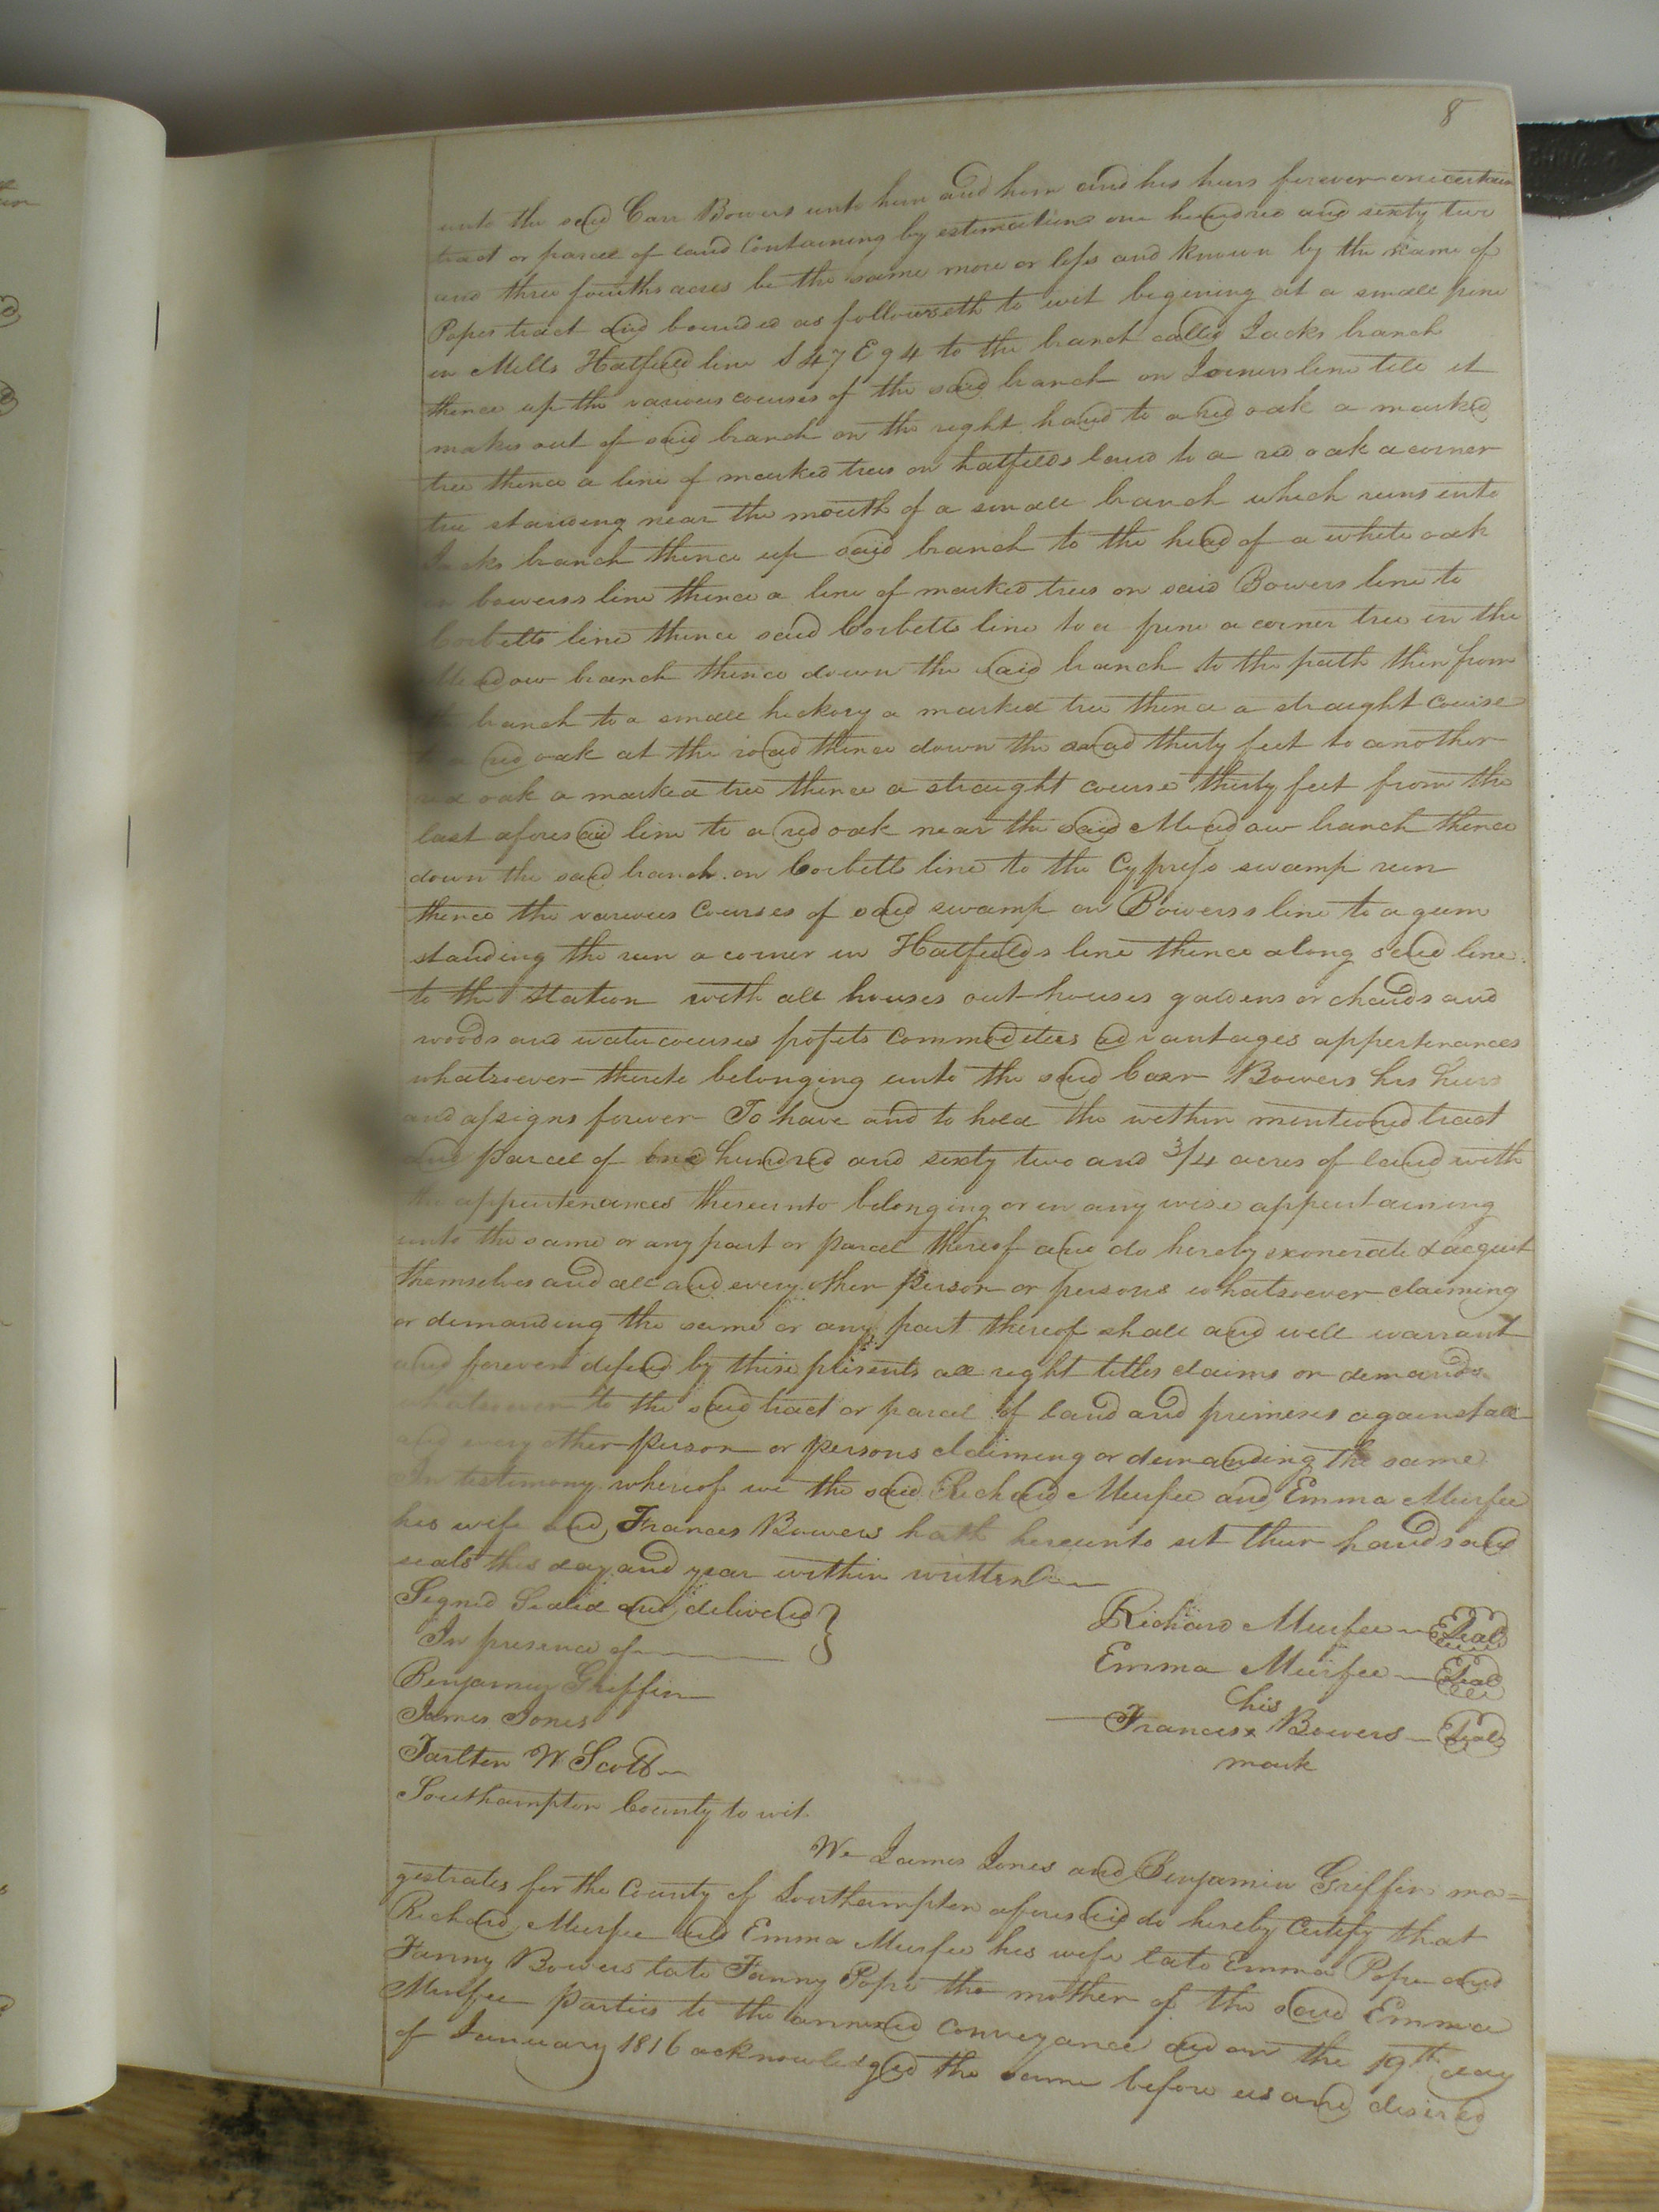 8
unto the said Carr Bowers unto him and him and his heirs forever one certain
tract or parcel of land Containing by estimations one hundred and sixty two
and three fourths acres be the same more or less and known by the name of
Popes tract and bounded as followseth to wit begining at a small pine
in Mills Hatfield line S 47 E 94 to the branch called Jacks branch
thence up the various courses of the said branch on Joiners line till it
makes out of said branch on the right hand to a red oak a marked
tree thence a line of marked trees on hatfields land to a red oak a corner
tree standing near the mouth of a small branch which runs into
Jacks branch thence up said branch to the head of a white oak
in bowerss line thence a line of marked trees on said Bowers line to
Corbetts line thence said Corbetts line to a pine a corner tree in the
Meadow branch thence down the said branch to the path then from
the branch to a small hickory a marked tree thence a straight course
to a red oak at the road thence down the road thirty feet to another
red oak a marked tree thence a straight course thirty feet from the
last aforesaid line to a red oak near the said Meadow branch thence
down the said branch on Corbetts line to the Cypress swamp run
thence the various Courses of said swamp on Bowerss line to a gum
standing the run a corner in Hatfields line thence along said line
to the Station with all houses out-houses gardens orchards and
woods and water courses profits commodities advantages appertenances
whatsoever thereto belonging unto the said Carr Bowers his heirs
and assigns forever To have and to hold the within mentioned tract
and parcel of one hundred and sixty two and 3/4 acres of land with
the appertenances thereunto belonging or in any wise appertaining
unto the same or any part or parcel thereof and do hereby exonerate & acquit
themselves and all and every other person or persons whatsoever claiming
or demanding the same or any part thereof shall and will warrant
and forever defend by these presents all right titles claims or demands
whatsoever to the said tract or parcel of land and premises against all
and every other person or persons claiming or demanding the same
In testimony whereof we the said Richard Murfee and Emma Murfee
his wife and Frances Bowers hath hereunto set their hands and
seals this day and year within written
Signed Sealed and delivered }
In presence of
Richard Murfee Seal
Emma Murfee Seal
his
Frances x Bowers Seal
mark
Benjamin Griffin
James Jones
Tarlten W Scott
Southampton County to wit
We James Jones and Benjamin Griffin ma=
gestrates for the County of Southampton aforesaid do hereby Certify that
Richard Murfee and Emma Murfee his wife late Emma Pope and
Fanny Bowers late Fanny Pope the mother of the said Emma
Murfee parties to the annexed conveyance did on the 19th day
of January 1816 acknowledged the same before us and desired